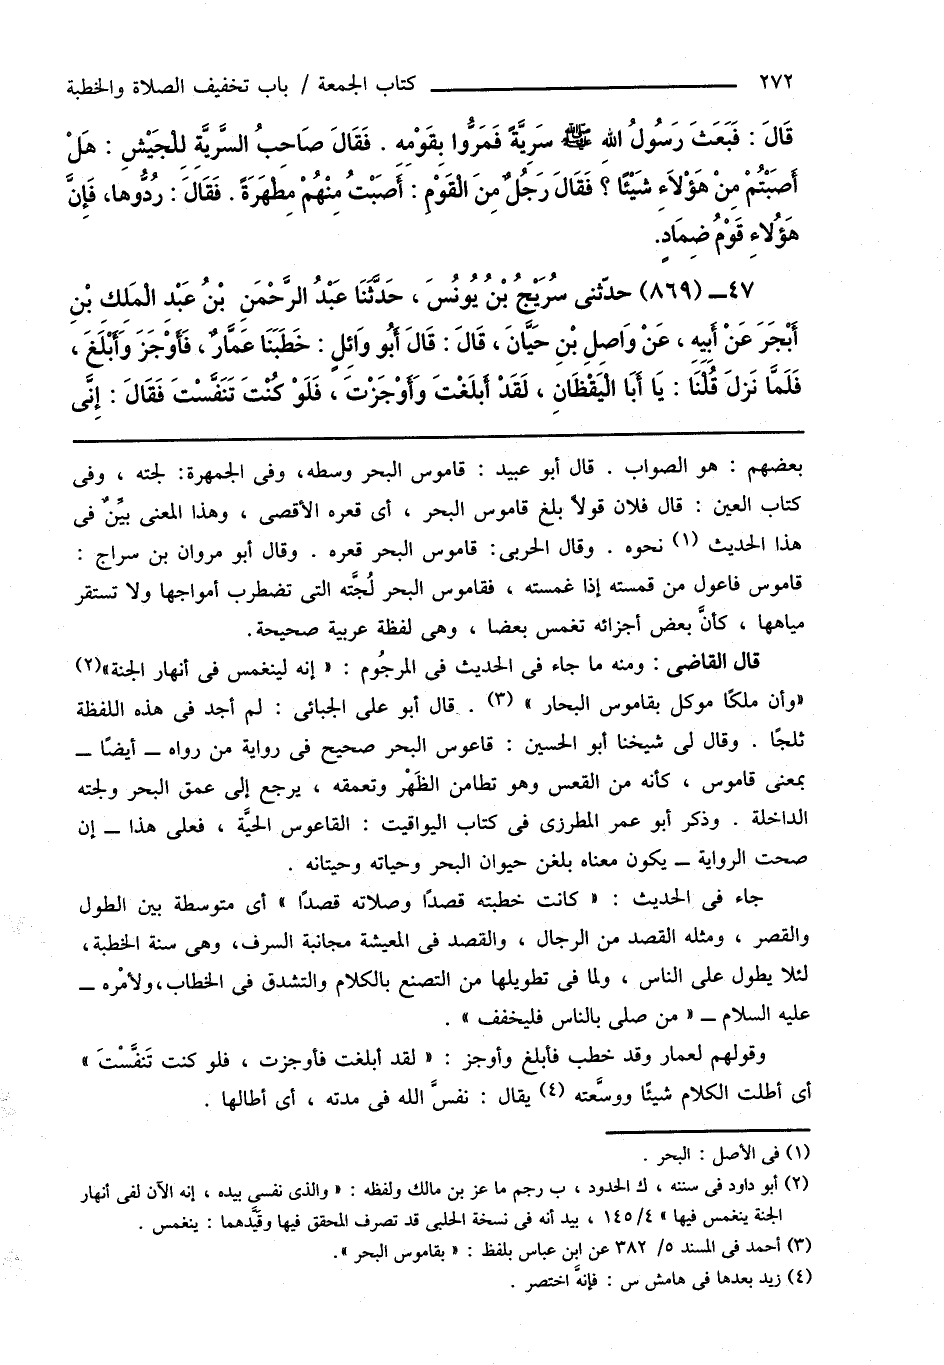 ٢٧٢ ــــــــــــــــــــــ كتاب الجمعة / باب تخفيف الصلاة والخطبة
قَالَ : فَبَعَثَ رَسُولُ اللهِ ﷺ سَرِيَّةً فَمَرُّوا بِقَوْمِهِ . فَقَالَ صَاحِبُ السَّرِيَّةِ لِلْجَيْشِ : هَلْ
أَصَبْتُمْ مِنْ هَؤْلاَءِ شَيْئًا ؟ فَقَالَ رَجُلٌ مِنَ الْقَوْمِ : أَصَبْتُ مِنْهُمْ مِطْهَرَةً . فَقَالَ : رُدُّوها، فَإِنَّ
هَؤُلاءِ قَوْمُ ضِمَادٍ.
٤٧ـ (٨٦٩) حدّثنى سُرَيْجُ بْنُ يُونُسَ ، حَدَّثَنَا عَبْدُ الرَّحْمَنِ بْنُ عَبْدِ الْمَلِكِ بْنِ
أَبْجَرَ عَنْ أَبِيهِ ، عَنْ وَاصِلِ بْنِ حَيَّانَ ، قَالَ : قَالَ أَبُو وَائِلٍ : خَطَبَنَا عَمَّارٌ ، فَأَوْجَزَ وَأَبْلَغَ ،
فَلَمَّا نَزَلَ قُلْنَا : يَا أَبَا الْيَقْظَانِ ، لَقَدْ أَبْلَغْتَ وَأَوْجَزْتَ ، فَلَوْ كُنْتَ تَنَفَّسْتَ فَقَالَ : إِنَّى
بعضهم : هو الصواب . قال أبو عبيد : قاموس البحر وسطه، وفى الجمهرة: لجته ، وفى
كتاب العين : قال فلان قولاً بلغ قاموس البحر ، أى قعره الأقصى ، وهذا المعنى بيِّنٌ فى
هذا الحديث (١) نحوه . وقال الحربى: قاموس البحر قعره . وقال أبو مروان بن سراج :
قاموس فاعول من قمسته إذا غمسته ، فقاموس البحر لُجَّته التى تضطرب أمواجها ولا تستقر
مياهها ، كأنَّ بعض أجزائه تغمس بعضا ، وهى لفظة عربية صحيحة.
قال القاضى : ومنه ما جاء فى الحديث فى المرجُوم : « إنه لينغمس فى أنهار الجنة»(٢)
«وأن ملكًا موكل بقاموس البحار » (٣) . قال أبو على الجبائى : لم أجد فى هذه اللفظة
ثلجًا . وقال لى شيخنا أبو الحسين : قاعوس البحر صحيح فى رواية من رواه ـ أيضًا ـ
بمعنى قاموس ، كأنه من القعس وهو تطامن الظَهْر وتعمقه ، يرجع إلى عمق البحر ولجته
الداخلة . وذكر أبو عمر المطرزى فى كتاب اليواقيت : القاعوس الحيَّة ، فعلى هذا ـ إن
صحت الرواية ـ يكون معناه بلغن حيوان البحر وحياته وحيتانه .
جاء فى الحديث : « كانت خطبته قصدًا وصلاته قصدًا » أى متوسطة بين الطول
والقصر ، ومثله القصد من الرجال ، والقصد فى المعيشة مجانبة السرف، وهى سنة الخطبة،
لئلا يطول على الناس ، ولما فى تطويلها من التصنع بالكلام والتشدق فى الخطاب، ولأمْره ـ
عليه السلام ـ « من صلى بالناس فليخفف » .
وقولهم لعمار وقد خطب فأبلغ وأوجز : « لقد أبلغت فأوجزت ، فلو كنت تَنَفَّسْتَ »
أى أطلت الكلام شيئًا ووسَّعته (٤) يقال : نفسَّ الله فى مدته ، أى أطالها .
(١) فى الأصل : البحر .
(٢) أبو داود فى سننه ، ك الحدود ، ب رجم ما عز بن مالك ولفظه : « والذى نفسى بيده ، إنه الآن لفى أنهار
الجنة ينغمس فيها » ٤/ ١٤٥ ، بيد أنه فى نسخة الحلبى قد تصرف المحقق فيها وقيَّدهما : ينغمس .
(٣) أحمد فى المسند ٥/ ٣٨٢ عن ابن عباس بلفظ : « بقاموس البحر ».
(٤) زيد بعدها فى هامش س : فإنهَّ اختصر .